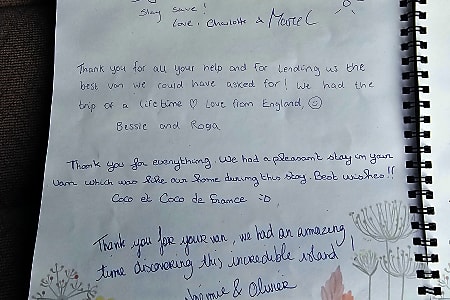 Stay safe!
Love, Charlotte &
Thank you for all your help and for lending us the
best van we could have asked for! We had the
trip of a lifetime ♡ Love from England, ☺
Bessie and
Thank you for everything. We had a pleasant stay in your
van which was like our home during this stay. Best wishes!!
Coco et Coco de France :D
Thank you for your van, we had an amazing
time discovering this incredible island!
& Olivier